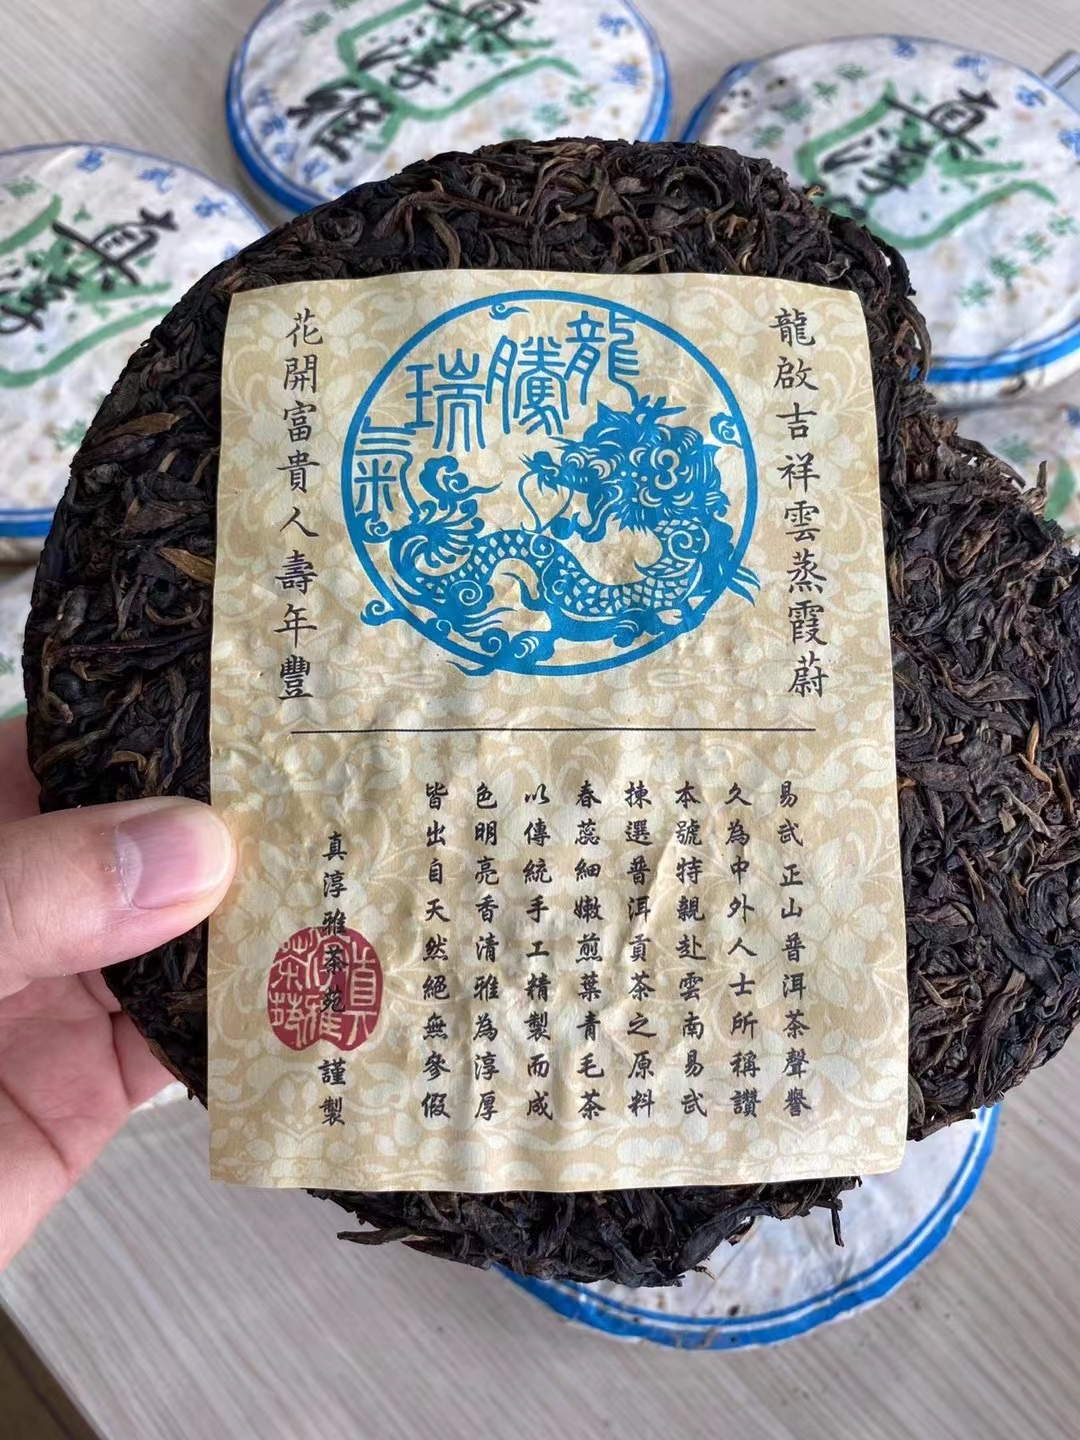 龍啟吉祥雲蒸霞蔚
龍騰瑞氣
花開富貴人壽年豐
易武正山普洱茶聲譽
久為中外人士所稱讚
本號特親赴雲南易武
揀選普洱貢茶之原料
春蕊細嫩煎葉青毛茶
以傳統手工精製而成
色明亮香清雅為淳厚
皆出自天然絕無參假
真淳雅茶苑 謹製
真淳雅
真淳雅
真淳雅